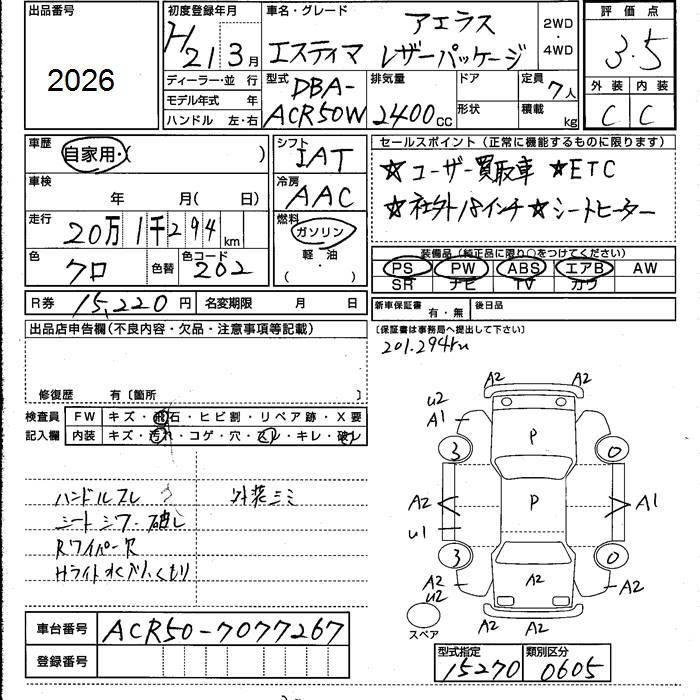 出品番号 初度登録年月 車名・グレード 評価点
2026 H21 3月 エスティマ アエラス レザーパッケージ 2WD・4WD 3.5
ディーラー・並行 型式 排気量 ドア 定員 7人 外装 内装
モデル年式 年 DBA-ACR50W 2400cc 形状 積載 kg C C
ハンドル 左・右
車歴 自家用・( ) シフト IAT セールスポイント(正常に機能するものに限ります)
☆ユーザー買取車 ☆ETC
車検 年 月( 日) 冷房 AAC
☆社外18インチ ☆シートヒーター
走行 20万1千294km 燃料 ガソリン
軽・油
( )
色 クロ 色替 色コード 202
装備品(純正品に限り○をつけてください)
PS PW ABS エアB AW
SR ナビ TV カワ
R券 15,220円 名変期限 月 日 新車保証書 有・無 後日品
出品店申告欄(不良内容・欠品・注意事項等記載) 〔保証書は事務局へ提出して下さい〕
201.294km
修復歴 有〔箇所 〕
検査員 FW キズ・飛石・ヒビ割・リペア跡・X要
記入欄 内装 キズ・汚れ・コゲ・穴・スレ・キレ・破レ
ハンドルスレ 外装ミミ
シートシワ・破レ
Rワイパー欠
Hライト水入りくもり
A2 A2
U2
A1
P
3 0
A2 P A1
U1
3 0
A2 A2 A2
U2
スペア A2 A2
車台番号 ACR50-7077267
登録番号
型式指定 15270 類別区分 0605